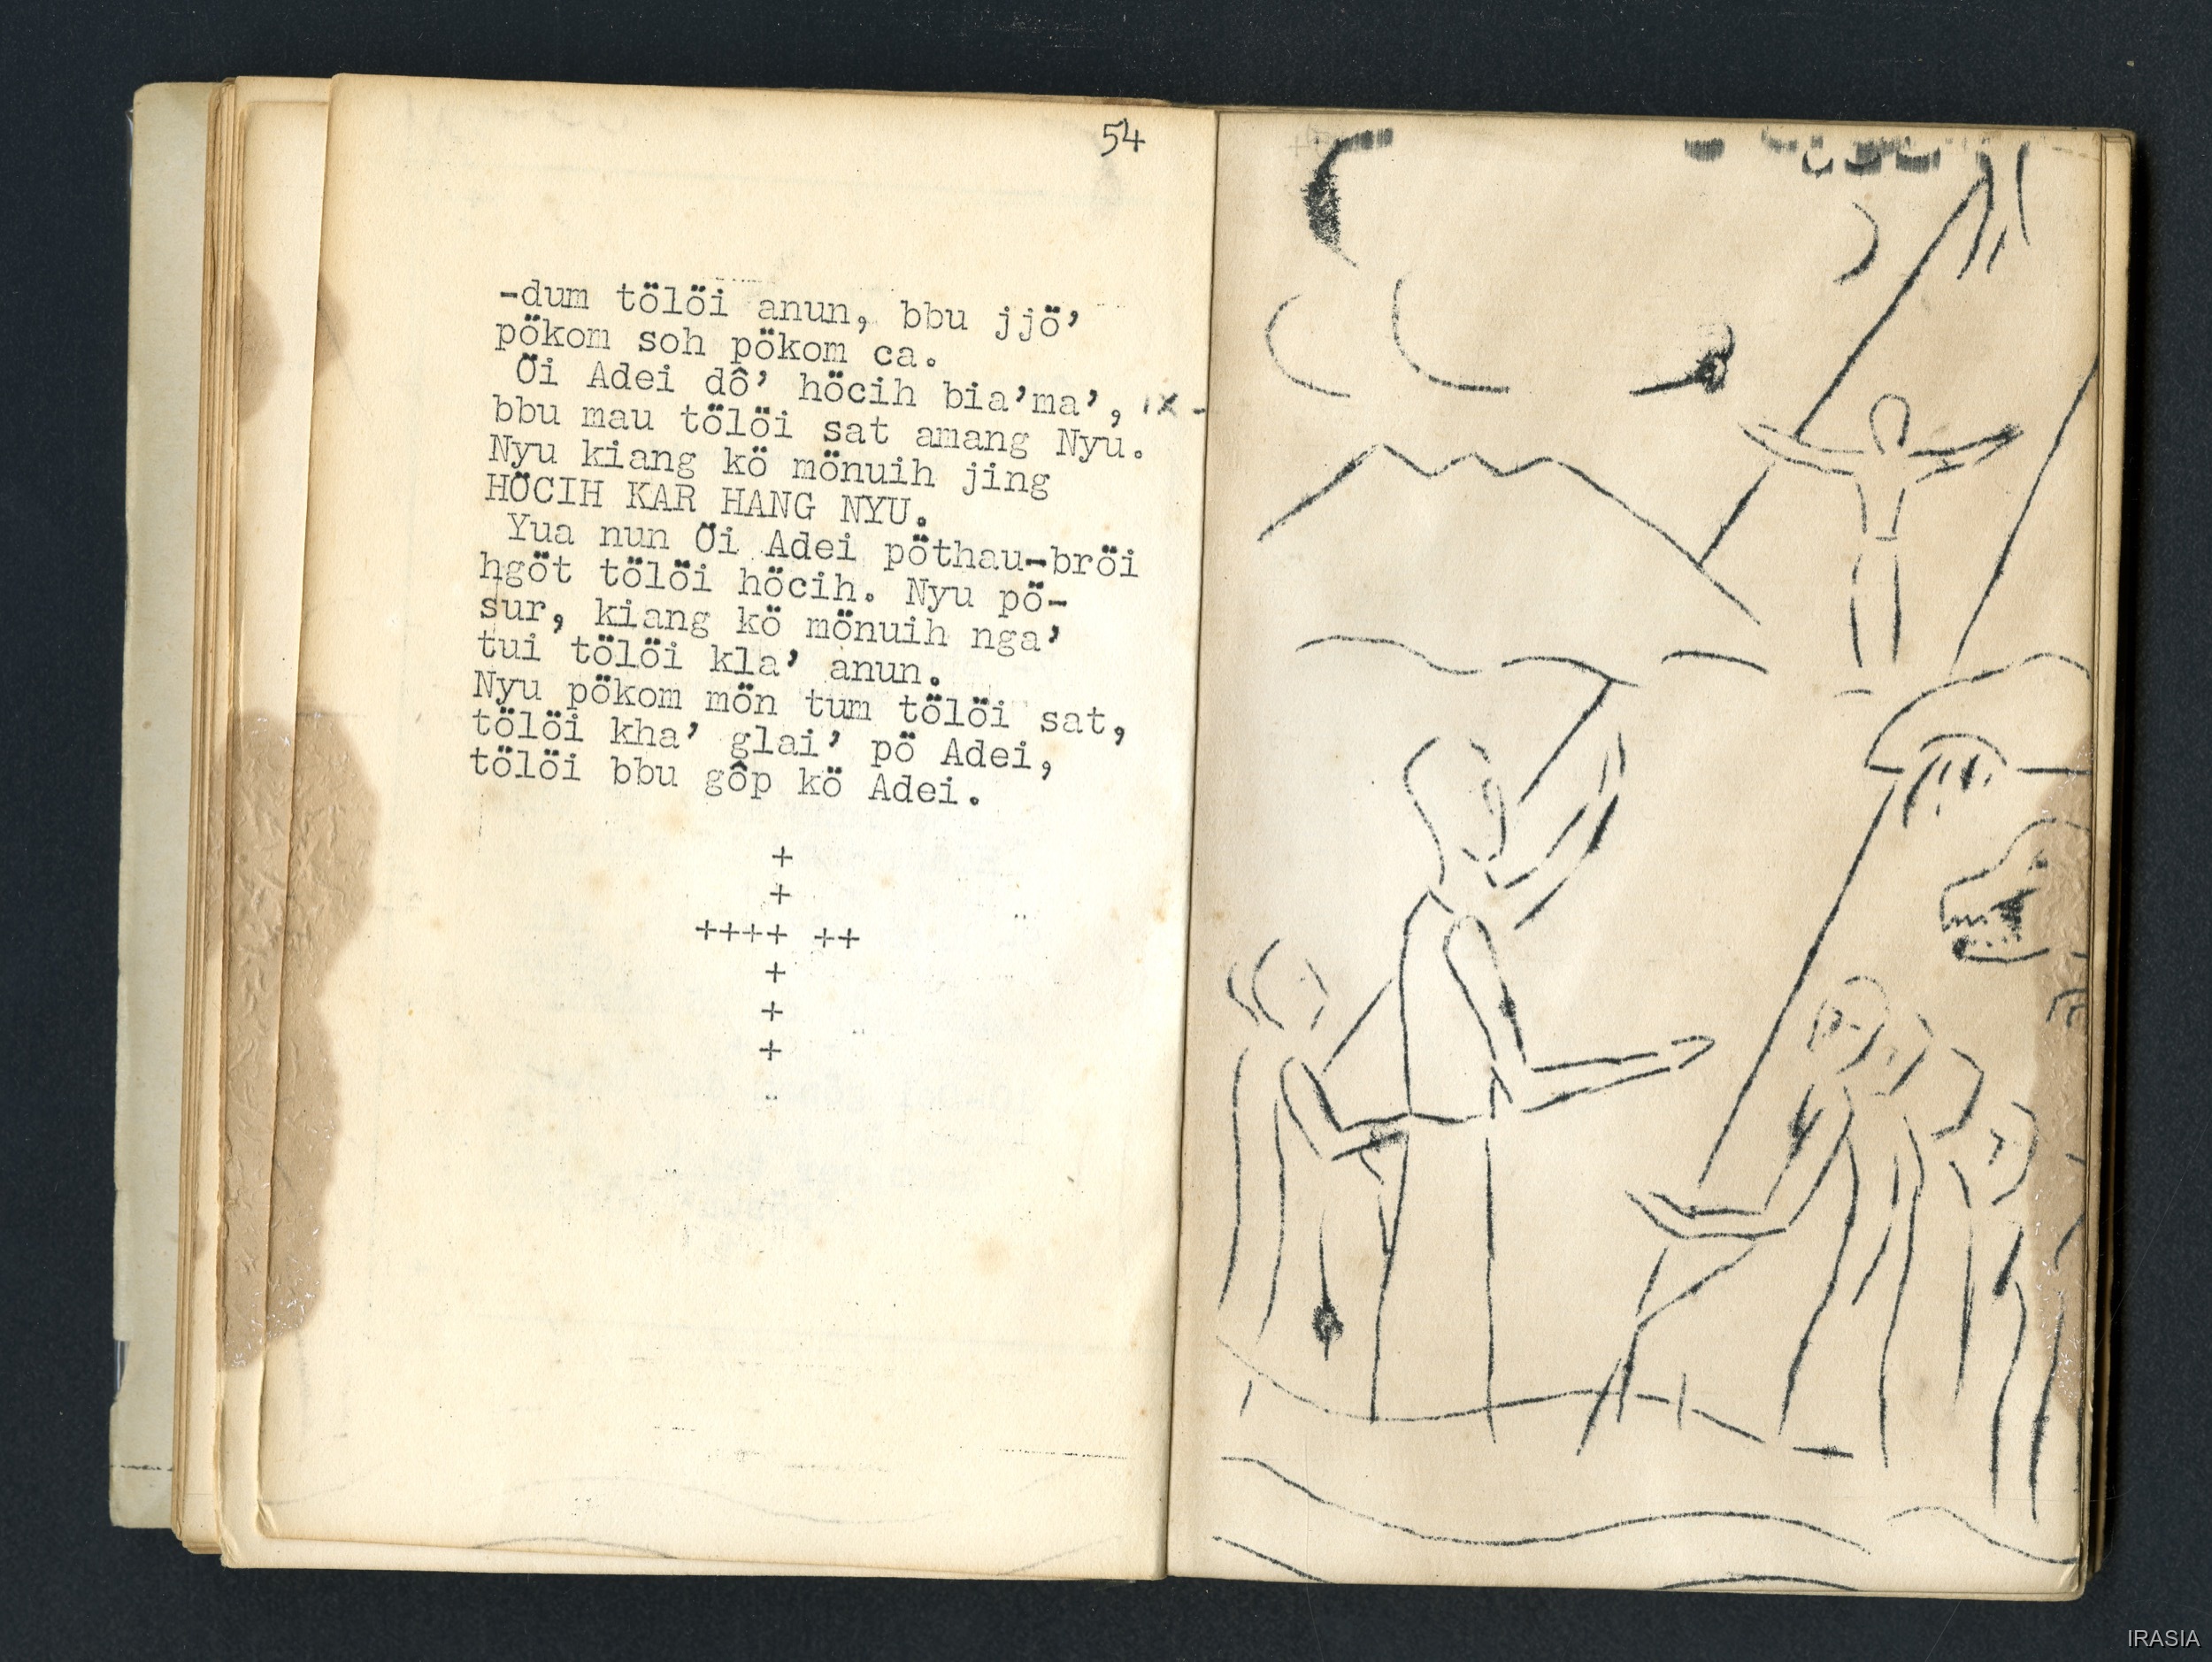 54
-dum tölöi anun, bbu jjö’
pökom soh pökom ca.
Öi Adei dô’ höcih bia’ma’, IX-
bbu mau tölöi sat amang Nyu.
Nyu kiang kö mönuih jing
HÖCIH KAR HANG NYU.
Yua nun Öi Adei pöthau-bröi
hgöt tölöi höcih. Nyu pö-
sur, kiang kö mönuih nga’
tui tölöi kla’ anun.
Nyu pökom mön tum tölöi sat,
tölöi kha’ glai’ pö Adei,
tölöi bbu gôp kö Adei.
+
+
++++ ++
+
+
+
IRASIA